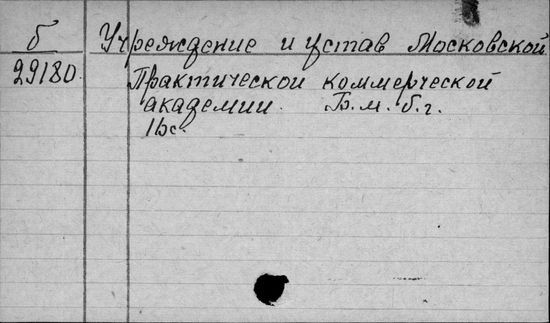 б Учреждение и устав Московской
29180. Практической коммерческой
академии. Б.м. б.г.
16с.